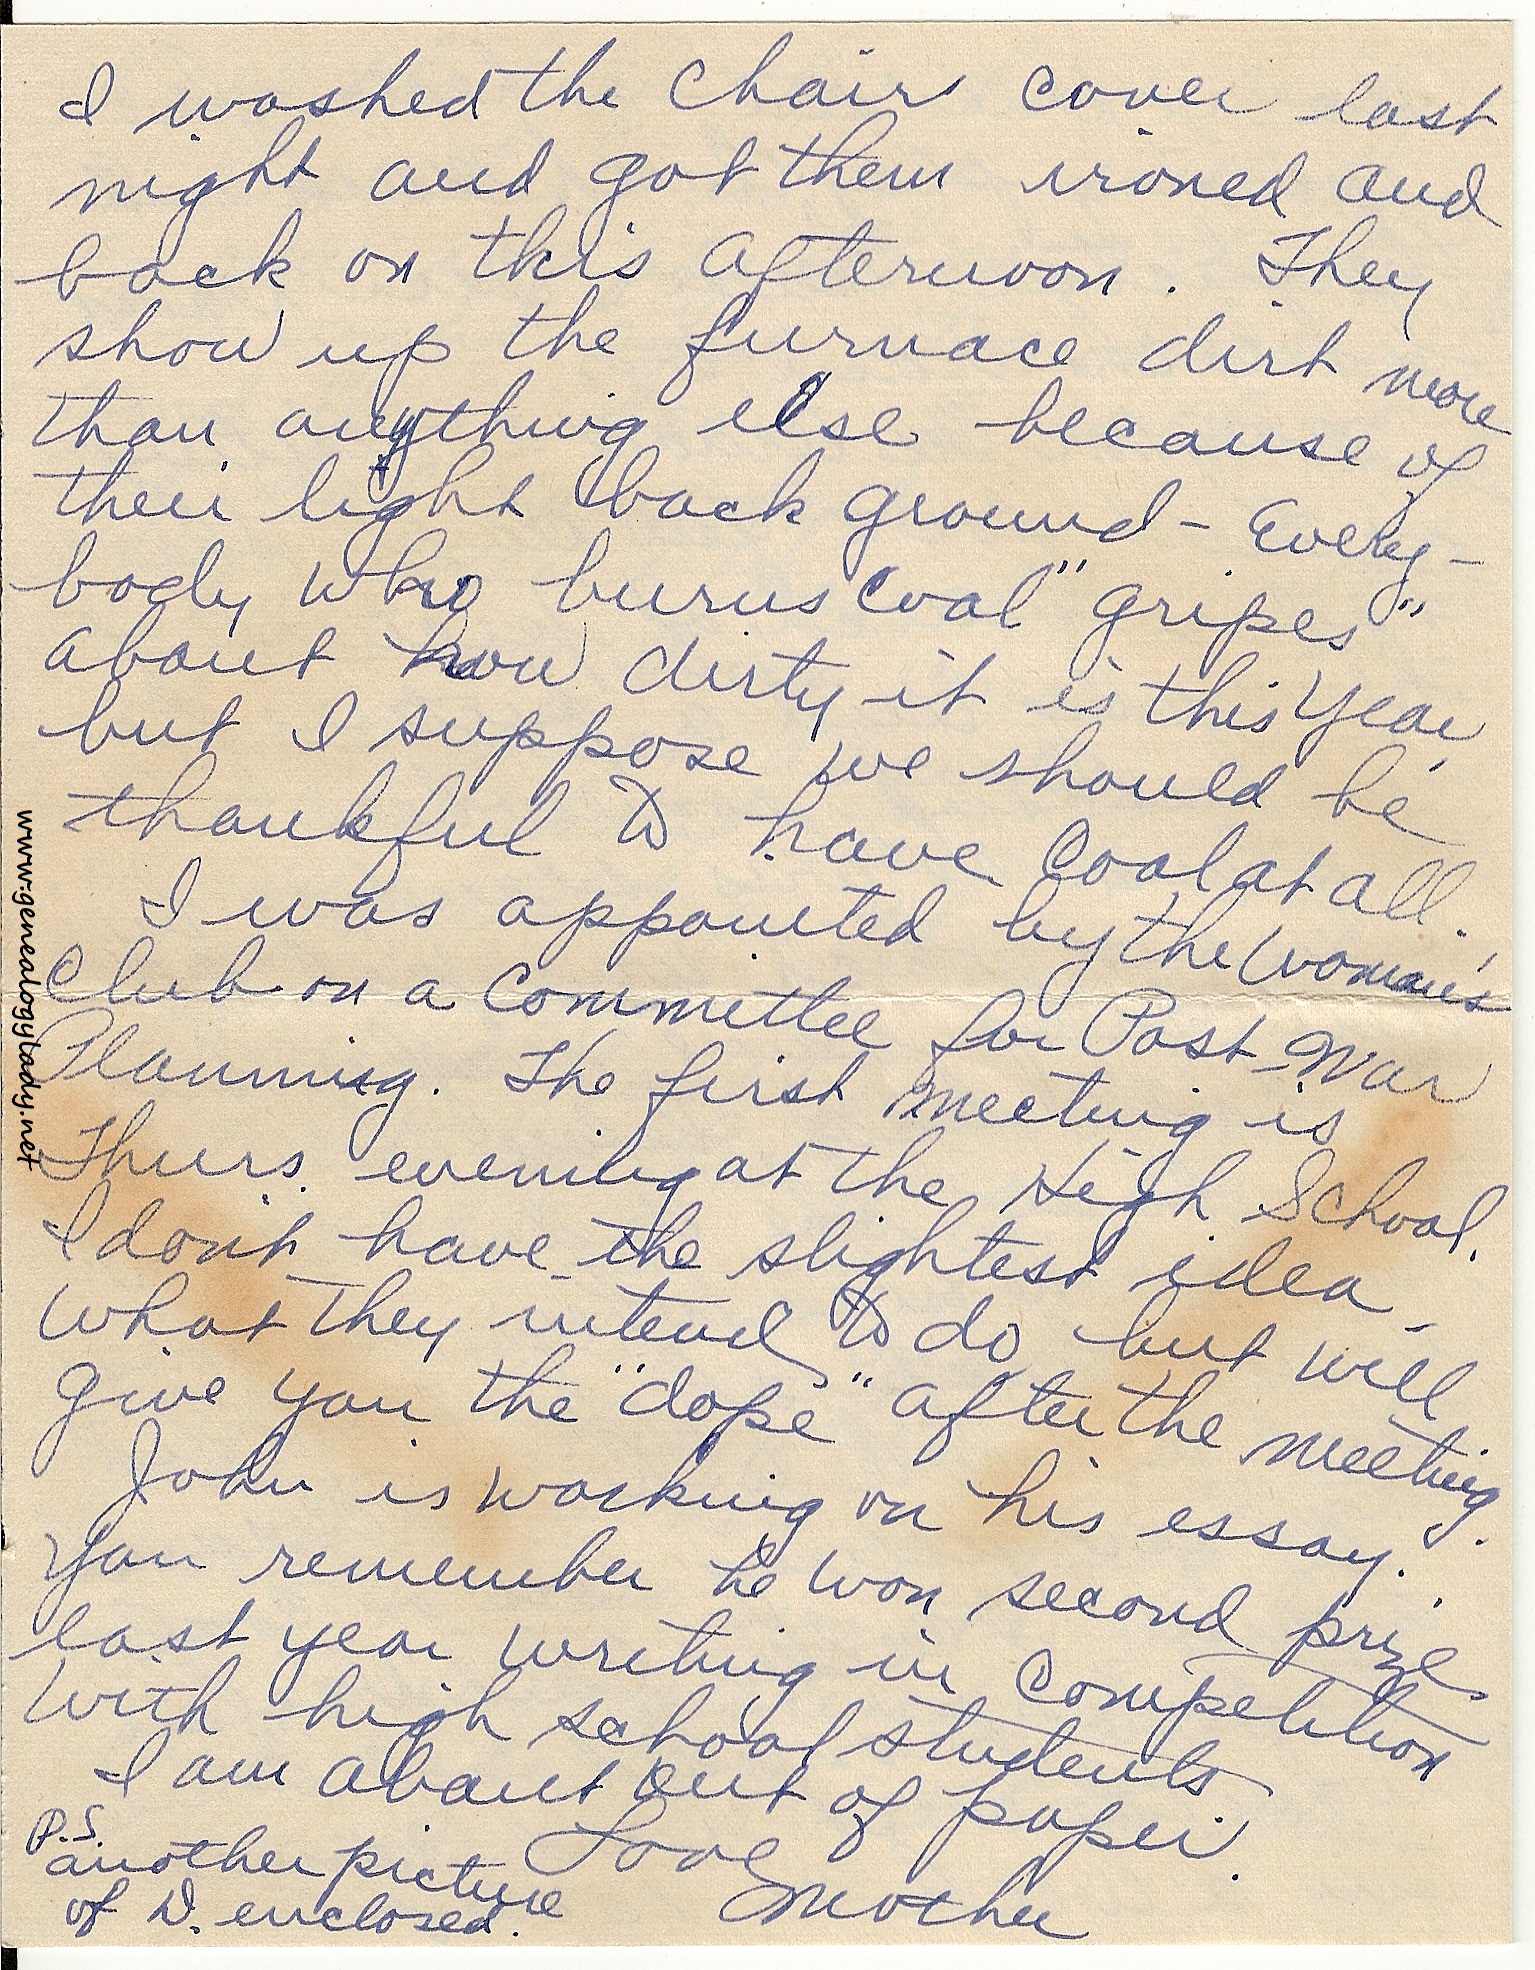 I washed the chairs cover last
night and got them ironed and
back on this afternoon. They
show up the furnace dirt more
than anything else because of
their light back ground - Every-
body who burns coal "gripes"
about how dirty it is this year,
but I suppose we should be
thankful to have coal at all.
I was appointed by the Woman's
Club on a committee for Post-War
Planning. The first meeting is
Thurs. evening at the High School.
I don't have the slightest idea
what they intend to do but will
give you the "dope" after the meeting.
John is working on his essay.
You remember he won second prize
last year writing in competition
with high school students.
I am about out of paper.
Love
Mother
P.S.
another picture
of D. enclosed.
www.genealogylady.net